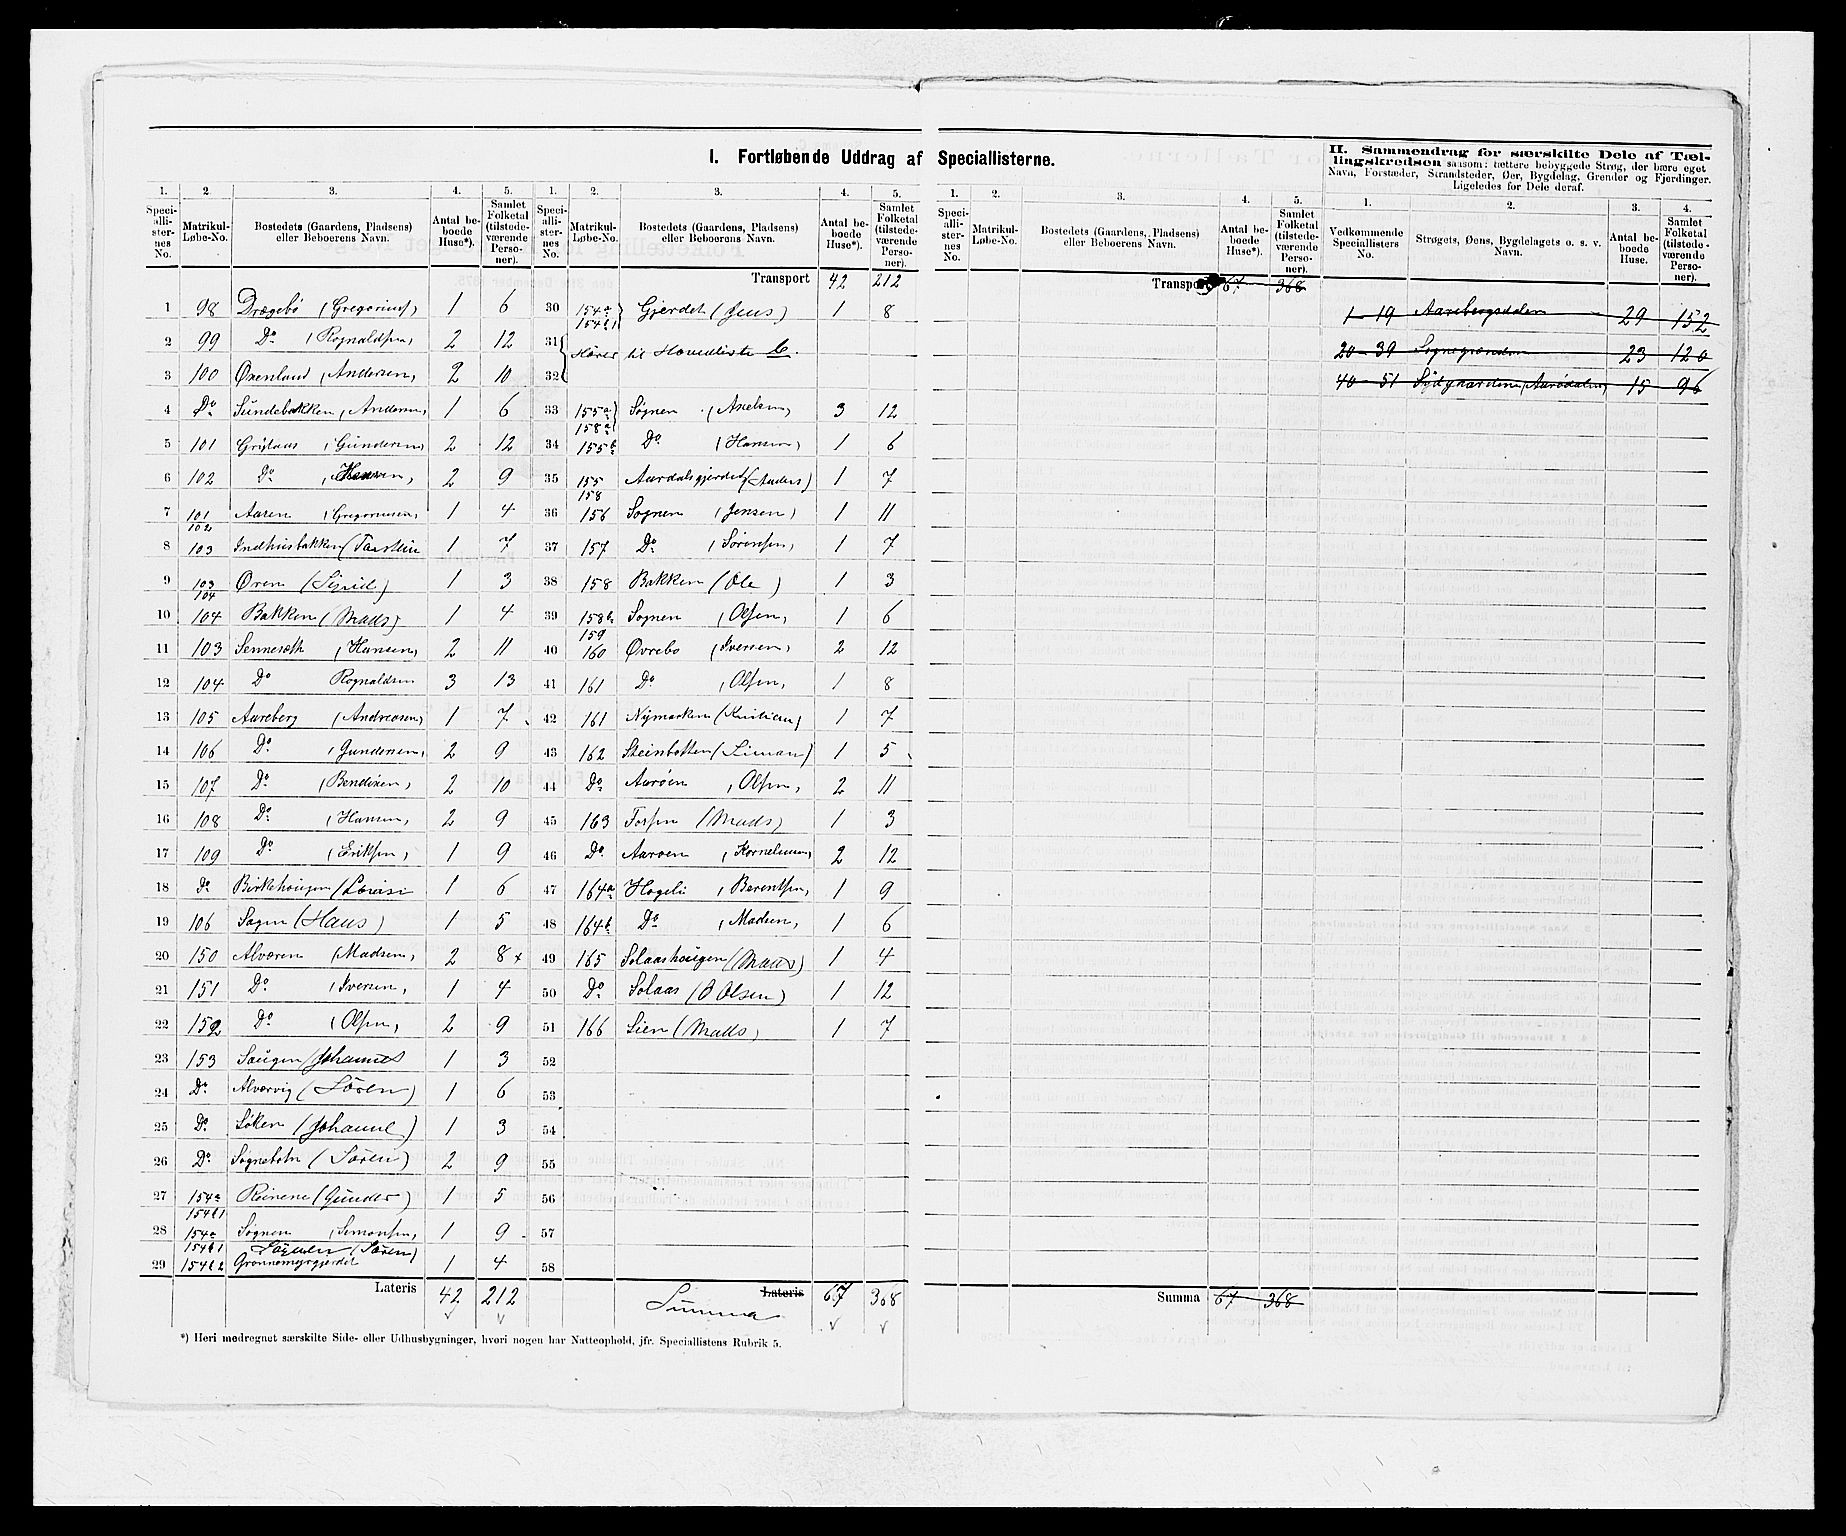 I. Fortløbende Uddrag af Speciallisterne.
II. Sammendrag for særskilte Dele af Tæl-
lingskredsen saasom: tættere bebyggede Strøg, der bære eget
Navn, Forstæder, Strandsteder, Øer, Bygdelag, Grender og Fjerdinger.
Ligeledes for Dele deraf.
1. 2. 3. 4. 5. 1. 2. 3. 4. 5. 1. 2. 3. 4. 5. 1. 2. 3. 4.
Speci-alli-ster-nes No. Matrikul-Løbe-No. Bostedets (Gaardens, Pladsens) eller Beboerens Navn. Antal be-boede Huse*). Samlet Folketal (tilstede-værende Perso-ner).
Speci-alli-ster-nes No. Matrikul-Løbe-No. Bostedets (Gaardens, Pladsens) eller Beboerens Navn. Antal be-boede Huse*). Samlet Folketal (tilstede-værende Perso-ner).
Speci-alli-ster-nes No. Matrikul-Løbe-No. Bostedets (Gaardens, Pladsens) eller Beboerens Navn. Antal be-boede Huse*). Samlet Folketal (tilstede-værende Perso-ner).
Vedkommende Speciallisters No. Strøgets, Øens, Bygdelagets o. s. v. Navn. Antal be-boede Huse. Samlet Folketal (tilstede-værende Personer).
1 98 Drægebø (Gregorius) 1 6
2 99 Do (Rognaldsen) 2 12
3 100 Øxenland (Andersen) 2 10
4 Do Sundebakken (Andersen) 1 6
5 101 Grytaas (Gundersen) 2 12
6 102 Do (Hansen) 2 9
7 101 102 Aaren (Gregoriusen) 1 4
8 103 Indhusbakken (Torstein 1 7
9 103 104 Øren (Sigrid) 1 3
10 104 Bakken (Mads) 1 4
11 103 Sennesæth (Hansen) 2 11
12 104 Do Rognaldsen 3 13
13 105 Aareberg (Andreasen) 1 7
14 106 Do (Gundersen) 2 9
15 107 Do (Bendixen) 2 10
16 108 Do (Hansen) 2 9
17 109 Do (Eriksen) 1 9
18 Do Birkehougen (Lovise 1 6
19 106 Sagen (Hans) 1 5
20 150 Alværen (Madsen) 2 8 x
21 151 Do (Iversen) 1 4
22 152 Do (Olsen) 2 9
23 153 Saugen (Johannes 1 3
24 Do Alværvig (Sören) 1 6
25 Do Søken (Johanne) 1 3
26 Do Søgnebotn (Sören) 2 9
27 154a 154b1 Reinene (Gunder) 1 5
28 154a 154b1 Søgnen (Simonsen) 1 9
Søgnen (Sören)
29 154b2 Grønnemyrgjerdet 1 4
Lateris 42 212
Transport 42 212
30 154a 154b1 Gjerdet (Jens) 1 8
31
32 Hører til Hovedliste C.
33 155a 158a Søgnen (Axelsen) 3 12
34 155b Do (Hansen) 1 6
35 155 158 Aardalsgjerdet (Anders) 1 7
36 156 Sognen (Jensen) 1 11
37 157 Do (Sørensen) 1 7
38 158 Bakken (Ole) 1 3
39 158b 159 Sognen (Olsen) 1 6
40 160 Øvrebø (Iversen) 2 12
41 161 Do (Olsen) 1 8
42 161 Nymarken (Kristian) 1 7
43 162 Steinbotten (Simon) 1 5
44 Do Aarøen (Olsen) 2 11
45 163 Forsen (Mads) 1 3
46 Do Aarøen (Korneliusen) 2 12
47 164a Hageli (Berentsen) 1 9
48 164b Do (Madsen) 1 6
49 165 Solaashougen (Mads) 1 4
50 Do Solaas (O Olsen) 1 12
51 166 Lien (Mads) 1 7
52
53
54
55
56
57
58
Lateris Summa 67 368
Transport 67 368
Summa 67 368
1-19 Aarebergsdalen 29 152
20-39 Sognegrenden 23 120
40-51 Sydgaardene (Aarødalen) 15 96
*) Heri medregnet særskilte Side- eller Udhusbygninger, hvori nogen har Natteophold, jfr. Speciallistens Rubrik 5.